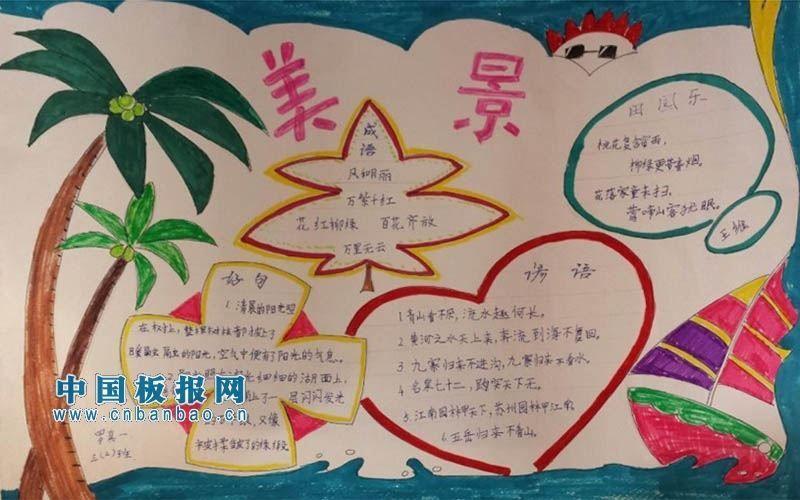 美景
成语
风和日丽
万紫千红
花红柳绿 百花齐放
万里无云
田园乐
桃花复含宿雨，
柳绿更带春烟。
花落家童未扫，
莺啼山客犹眠。
王维
好句
1、清晨的阳光照
在树上，整棵树挂着都披上了
暖融融的阳光，空气中便有了阳光的气息。
细细的湖面上，
上了一层闪闪发光
又像
的绿缎
谚语
1、青山看不尽，流水趣何长。
2、黄河之水天上来，奔流到海不复回。
3、九寨归来不进沟，九寨归来不看水。
4、名泉七十二，趵突天下无。
5、江南园林甲天下，苏州园林甲江南。
6、五岳归来不看山。
罗真一
三(2)班
中国板报网
www.cnbanbao.cn